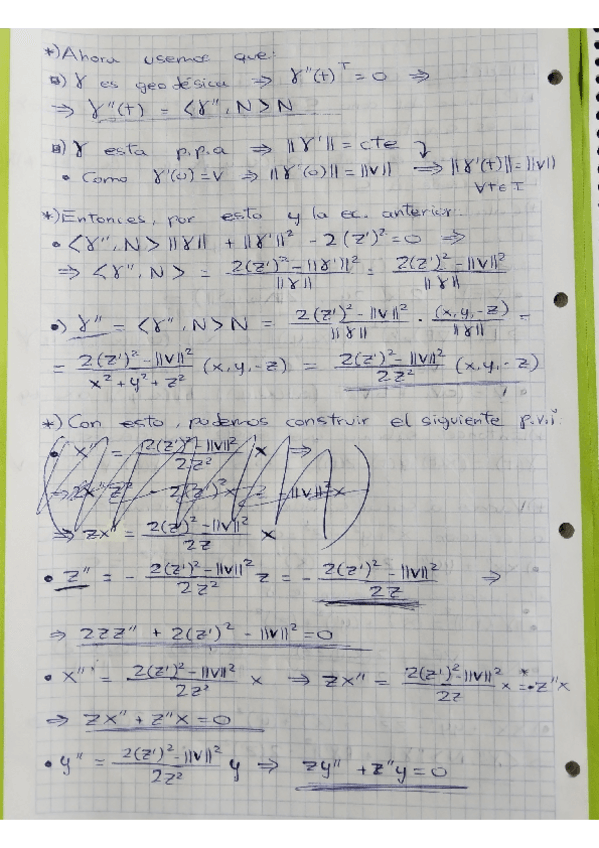 *) Ahora usemos que:
▫) γ es geodésica ⇒ γ''(t)^T = 0 ⇒
⇒ γ''(t) = <γ'', N> N
▫) γ esta p.p.a ⇒ ||γ'|| = cte
• Como γ'(0) = v ⇒ ||γ'(0)|| = ||v|| ⇒ ||γ'(t)|| = ||v||
∀t∈I
*) Entonces, por esto y la ec. anterior:
• <γ'', N> ||γ|| + ||γ'||² - 2(z')² = 0 ⇒
⇒ <γ'', N> = (2(z')² - ||γ'||²)/||γ|| = (2(z')² - ||v||²)/||γ||
•) γ'' = <γ'', N> N = (2(z')² - ||v||²)/||γ|| · (x,y,-z)/||γ|| =
= (2(z')² - ||v||²)/(x² + y² + z²) (x,y,-z) = (2(z')² - ||v||²)/(2z²) (x,y,-z)
*) Con esto, podemos construir el siguiente p.v.i:
• x'' = (2(z')² - ||v||²)/(2z²) x ⇒
⇒ zx'' = (2(z')² - ||v||²)/(2z) x
• z'' = - (2(z')² - ||v||²)/(2z²) z = - (2(z')² - ||v||²)/(2z) ⇒
⇒ 2zz'' + 2(z')² - ||v||² = 0
• x'' = (2(z')² - ||v||²)/(2z²) x ⇒ zx'' = (2(z')² - ||v||²)/(2z) x =* -z''x
⇒ zx'' + z''x = 0
• y'' = (2(z')² - ||v||²)/(2z²) y ⇒ zy'' + z''y = 0